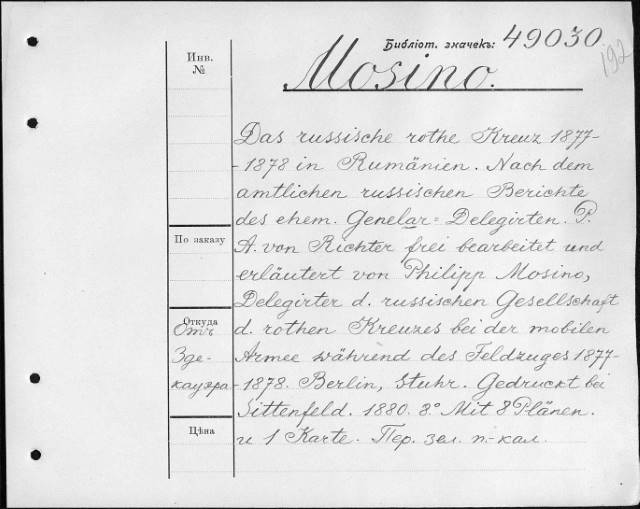 Библіот. значекъ: 49030
192
Инв.
№
Mosino.
Das russische rothe Kreuz 1877-
-1878 in Rumänien. Nach dem
amtlichen russischen Berichte
des ehem. Genelar=Delegirten. P.
A. von Richter frei bearbeitet und
erläutert von Philipp Mosino,
Delegirter d. russischen Gesellschaft
d. rothen Kreuzes bei der mobilen
Armee während des Feldzuges 1877-
-1878. Berlin, Stuhr. Gedruckt bei
Sittenfeld. 1880. 8.° Mit 8 Plänen.
u 1 Karte. Пер. зел. п.-кал.
По заказу
Откуда
Отъ
Зде-
кауэра
Цѣна